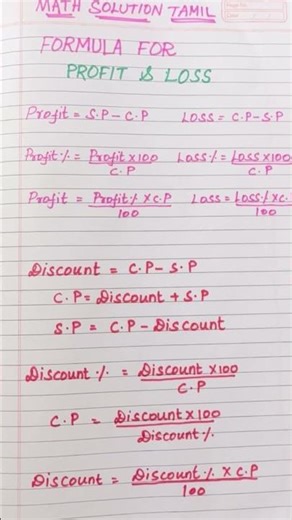 MATH SOLUTION TAMIL
FORMULA FOR
PROFIT & LOSS
Profit = S.P - C.P Loss = C.P - S.P
Profit % = Profit x 100 / C.P Loss % = Loss x 100 / C.P
Profit = Profit % x C.P / 100 Loss = Loss % x C. / 100
Discount = C.P - S.P
C.P = Discount + S.P
S.P = C.P - Discount
Discount % = Discount x 100 / C.P
C.P = Discount x 100 / Discount %
Discount = Discount % x C.P / 100